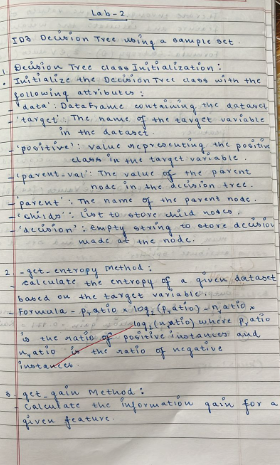 Lab-2
ID3 Decision Tree using a sample set
1. Decision Tree class Initialization :
• Initialize the Decision Tree class with the
following attributes :
- 'data' : Dataframe containing the dataset
- 'target' : The name of the target variable
in the dataset
- 'positive' : value representing the positive
class in the target variable.
- 'parent_val' : The value of the parent
node in the decision tree.
- 'parent' : The name of the parent node.
- 'childs' : list to store child nodes,
- 'decision' : empty string to store decision
made at the node.
2. - get_entropy method :
- calculate the entropy of a given dataset
based on the target variable.
- Formula - p_ratio × log₂(p_ratio) - n_ratio ×
log₂(n_ratio) where p_ratio
is the ratio of positive instances and
n_ratio is the ratio of negative
instances
3. - get_gain Method :
- Calculate the information gain for a
given feature